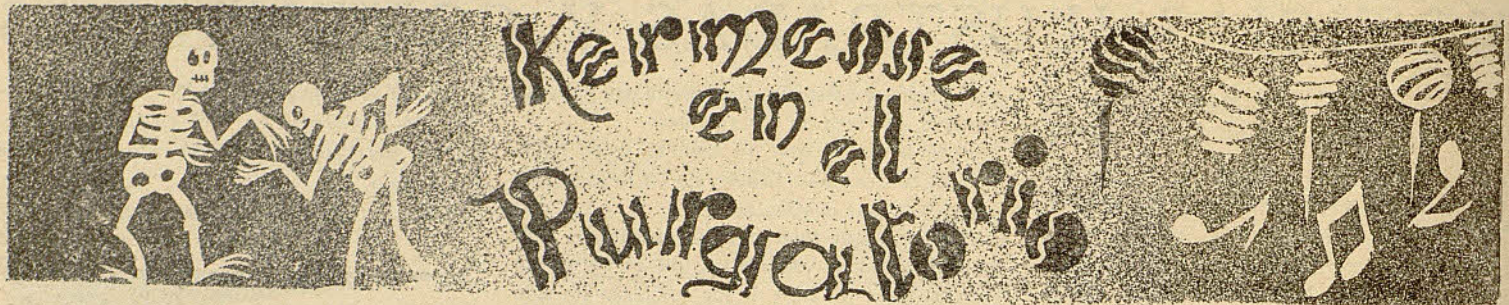 Kermesse
en el
Purgatorio